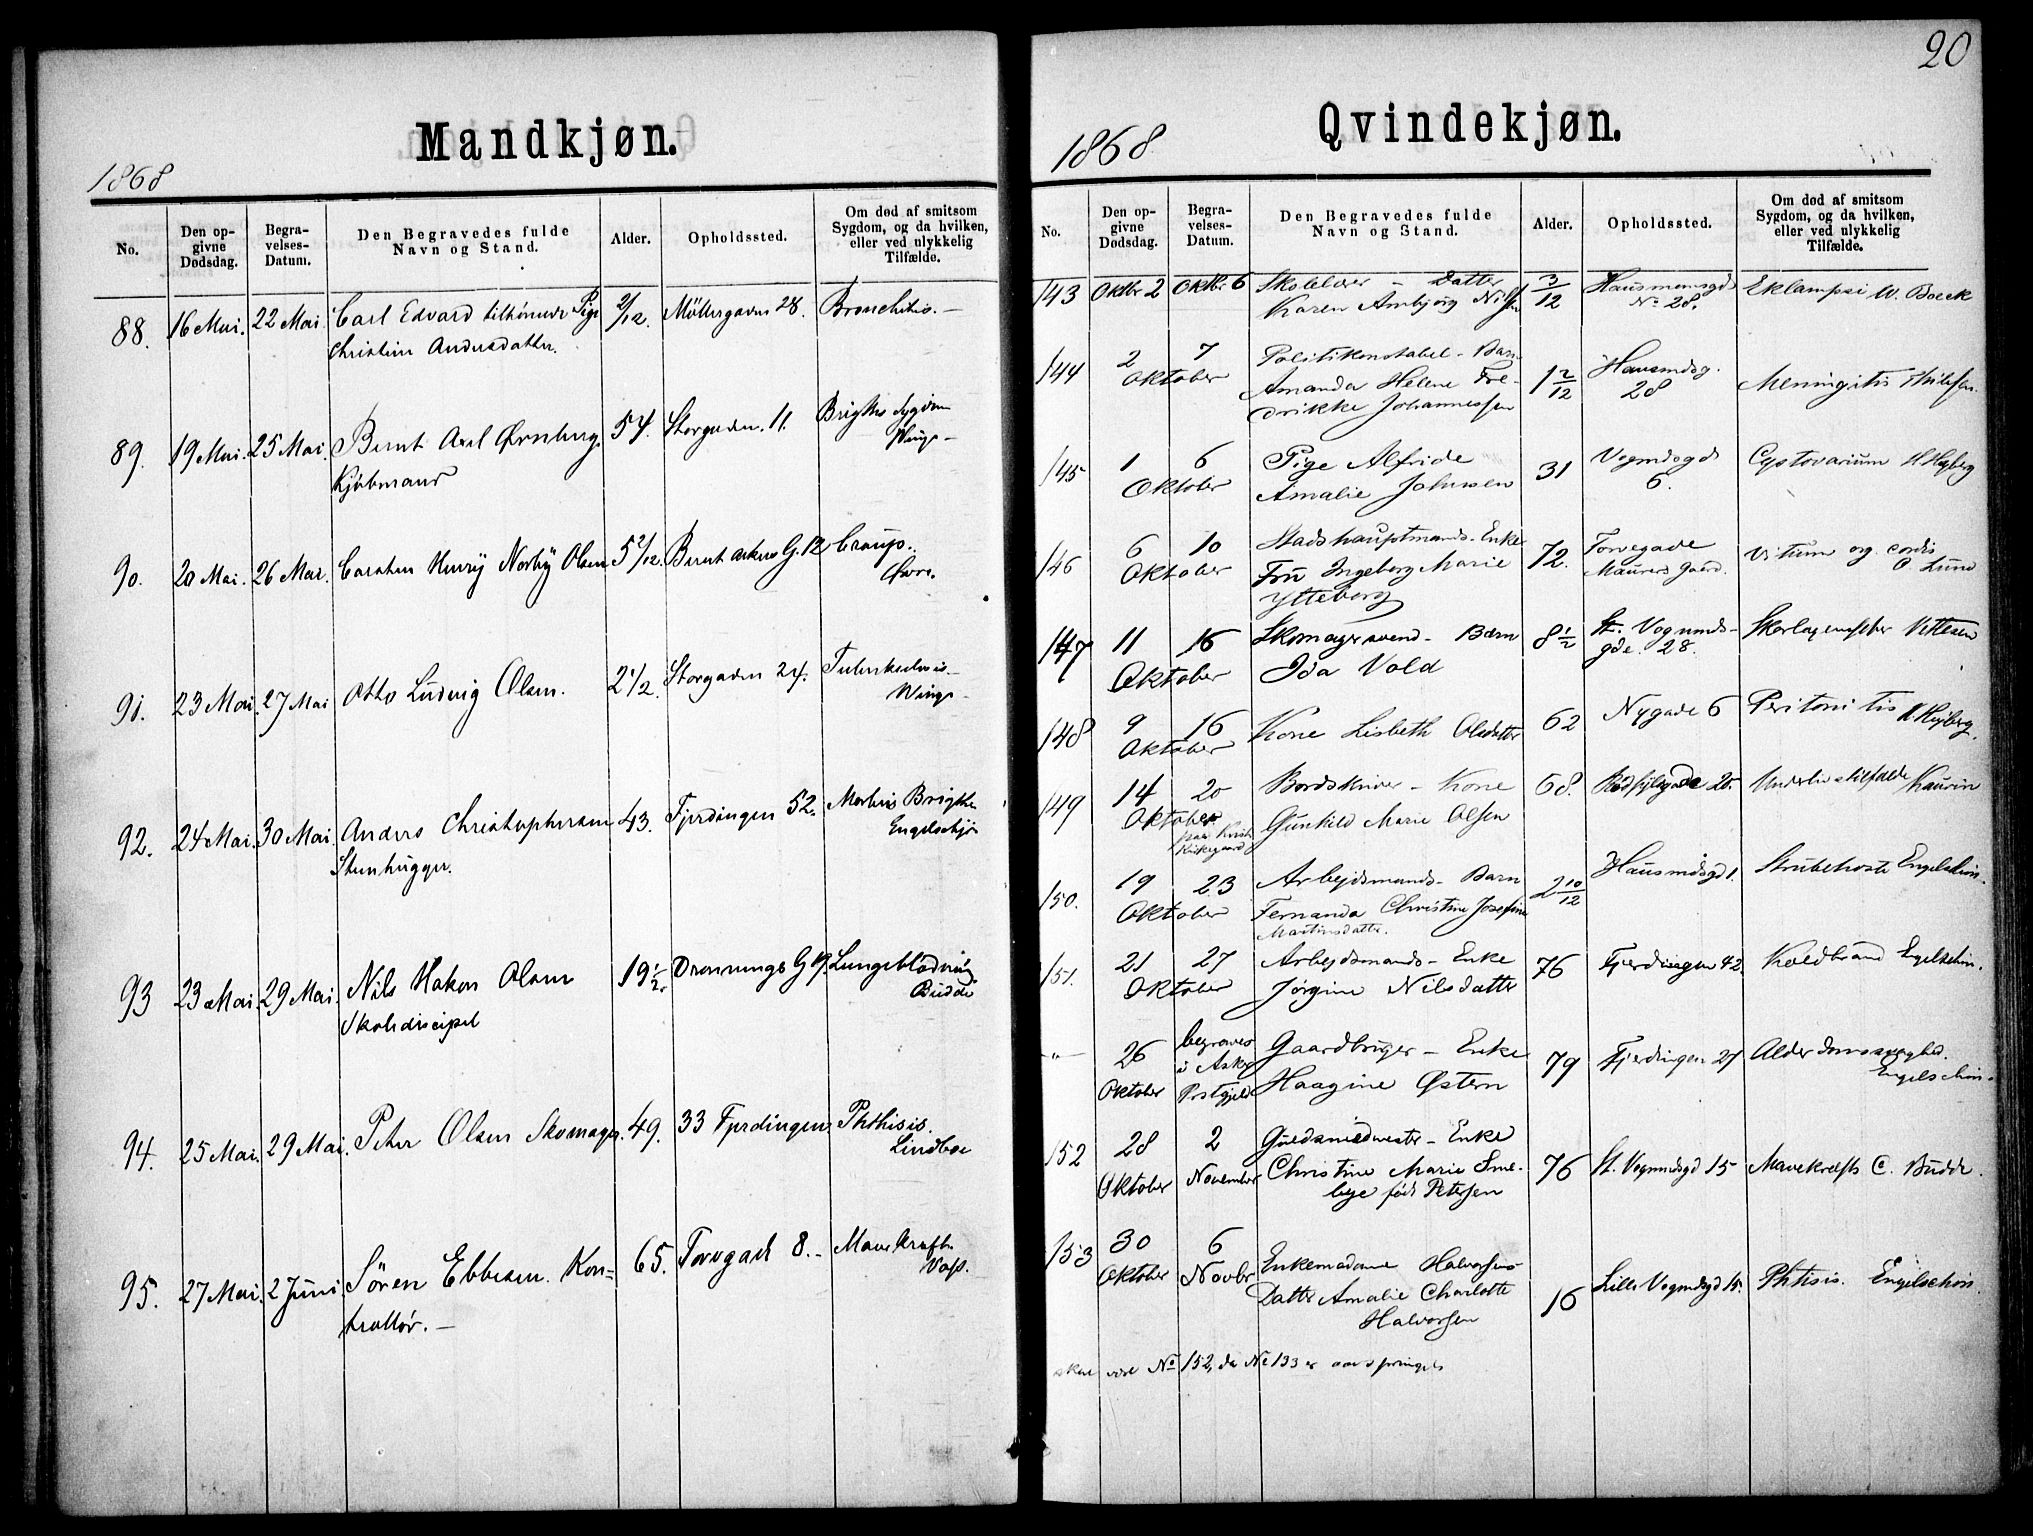 Mandkjøn.
1868
No.
Den op-
givne
Dødsdag.
Begra-
velses-
Datum.
Den Begravedes fulde
Navn og Stand.
Alder.
Opholdssted.
Om død af smitsom
Sygdom, og da hvilken,
eller ved ulykkelig
Tilfælde.
88. 16 Mai. 22 Mai. Carl Edvard tilhørende Pige 2/12. Møllergaden 28. Bronchitis. -
Christine Andersdatter.
89. 19 Mai. 25 Mai. Bernt Axel Ørnberg. 54. Storgaden. 11. Brigths Sygdom
Winge -
Kjøbmand
90. 20 Mai. 26 Mai. Carsten Henry Norby Olsen 5 2/12. Bernt Ankers G. 12 Croup.
91. 23 Mai. 27 Mai Otto Ludvig Olsen. 2 1/2. Storgaden 24. Tuberkulosis -
Winge -
92. 24 Mai. 30 Mai. Anders Christophersen 43. Fjerdingen 52. Morbus Brigthi
Engelschjøn
Stenhugger.
93 23 Mai. 29 Mai. Nils Hakon Olsen 19 1/2. Dronnings G 19. Lungeblødning
Budde
Skolediscipel
94. 25 Mai. 29 Mai. Peter Olsen Skomager. 49. 33 Fjerdingen. Phthisis.
Lindboe
95. 27 Mai. 2 Juni Søren Ebbesen. Kon= 65. Torvgade 8. - Mavekræft.
Voss.
trollør. -
20
Qvindekjøn.
1868
No.
Den op-
givne
Dødsdag.
Begra-
velses-
Datum.
Den Begravedes fulde
Navn og Stand.
Alder.
Opholdssted.
Om død af smitsom
Sygdom, og da hvilken,
eller ved ulykkelig
Tilfælde.
143 Oktbr 2 Oktbr 6 Skolelærer - Datter 3/12 Hausmansgd Eklampsi W. Boeck
Karen Ambjørg Nilssen No 28.
144 2 7 Politikonstabel - Barn
Oktober Amanda Helene Fre- 1 2/12 Hausmdsg. 28 Meningitis
drikke Johannessen
145 1 6 Pige Alfride 31 Vognmdsgd Cystovarium H. Heyberg
Oktober Amalie Johnsen 6.
146 6 10 Stadshauptmands - Enke 72. Torvegade Vitium org. cordis
Oktober Fru Ingeborg Marie Maurers Gaard. O Lund
Ytteberg
147 11 16 Skomagersvend - Barn 8 1/2 St. Vognmds- Skarlagensfeber
Oktober Ida Vold gde 28.
148 9 16 Kone Lisbeth Olsdatter 62 Nygade 6 Peritonitis H. Heyberg.
Oktober
149 14 20 Bordskriver - Kone 68. Rødfyldgade 20. Underlivstilfælde Kaurin
Oktober Gunhild Marie Olsen
paa Krist
Kirkegaard
150. 19 23 Arbejdsmands - Barn 2 10/12 Hausmdsgd 1. Strubehoste Engelschion.
Oktober Fernanda Christine Josefine
Martinsdatter.
151. 21 27 Arbejdsmands - Enke 76 Fjerdingen 42. Koldbrand Engelschion.
Oktober Jørgine Nilsdatter
- " - 26 begraves Gaardbruger - Enke 79 Fjerdingen 27 Alderdomssvaghed.
Oktober i Asker Haagine Østern Engelschion.
Prstgjeld
152 28 2 Guldsmedmester - Enke
Oktober November Christine Marie Sme- 76 St. Vognmdsgd 15 Mavekræft C. Budde.
bye født Petersen
153 30 6 Enkemadame Halvorsens
Oktober Novbr Datter Amalie Charlotte 16 Lille Vognmdsgd 15. Phtisis. Engelschion.
Halvorsen
skal være No 152, da No 133 er oversprunget